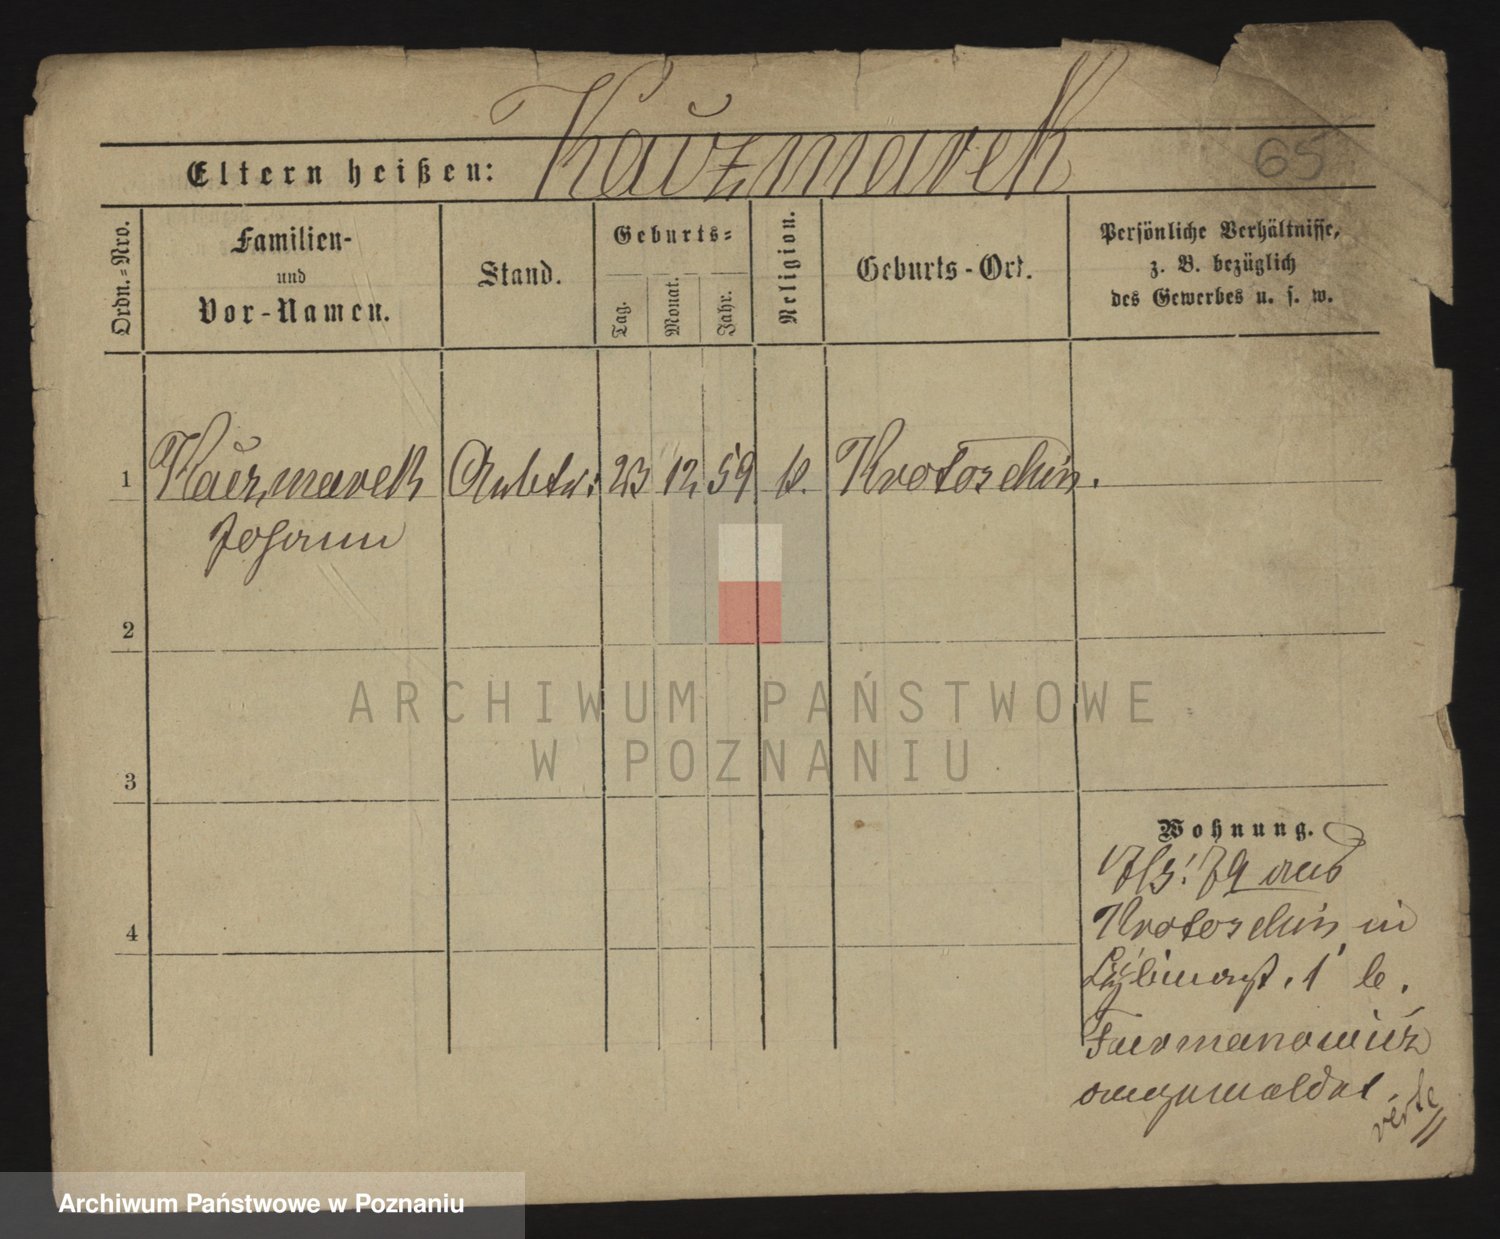 Kaczmarek
65
Eltern heißen:
Ordn.=Nro.
Familien-
und
Vor-Namen.
Stand.
Geburts=
Tag.
Monat.
Jahr.
Religion.
Geburts-Ort.
Persönliche Verhältnisse,
z. B. bezüglich
des Gewerbes u. s. w.
1 Kaczmarek 23 12 59 k. Krotoschin.
Johann
2
3
4
Wohnung.
/3. 79 aus
Krotoschin in
1 b.
Furmanowicz
angemeldet.
verte
ARCHIWUM PAŃSTWOWE
W POZNANIU
Archiwum Państwowe w Poznaniu